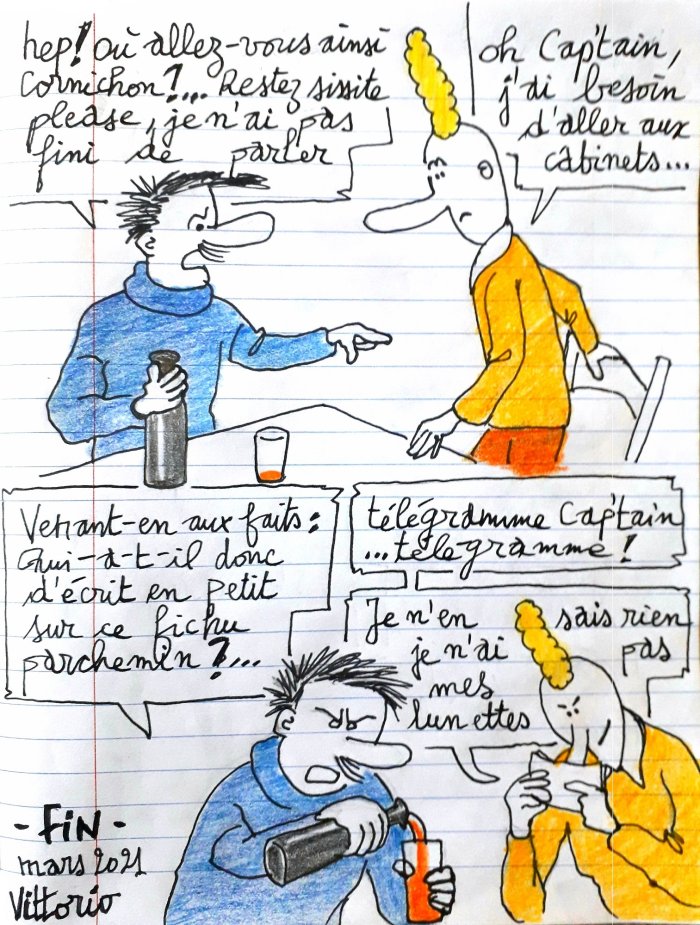 hep! où allez-vous ainsi
Cornichon?... Restez sissite
please, je n'ai pas
fini de parler
oh Cap'tain,
j'ai besoin
d'aller aux
cabinets...
Venant-en aux faits:
Qui-a-t-il donc
d'écrit en petit
sur ce fichu
parchemin?...
télégramme Cap'tain
...télégramme!
Je n'en sais rien
je n'ai pas
mes
lunettes
- FiN -
mars 2021
Vittorio